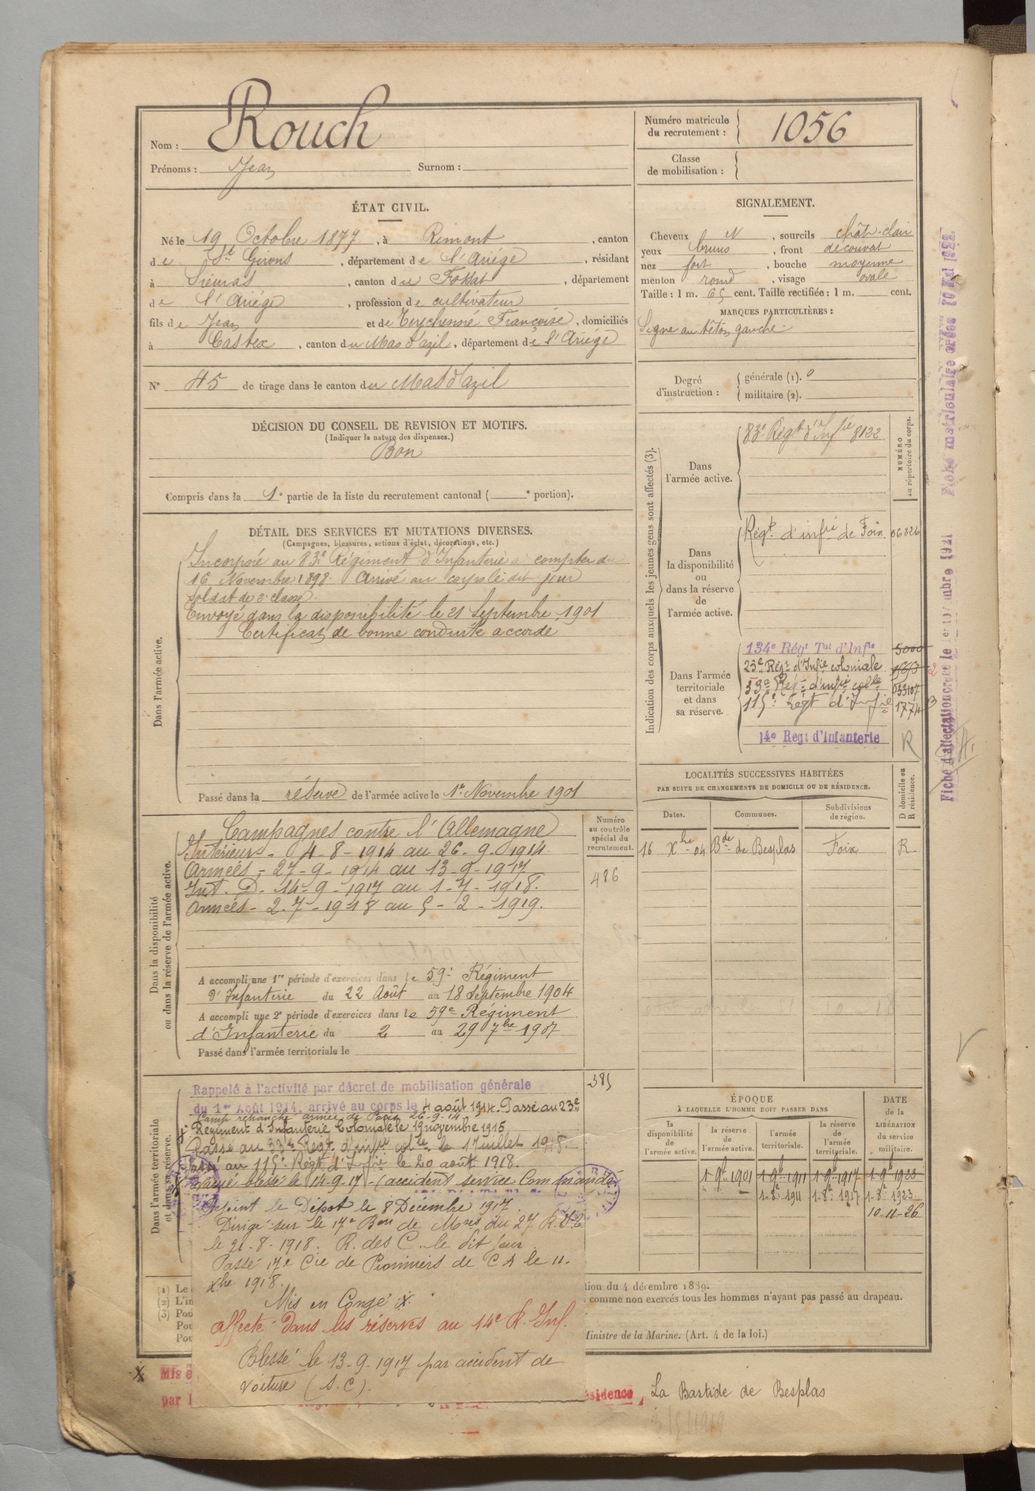 Nom : Rouch
Prénoms : Jean Surnom :
Numéro matricule du recrutement : 1056
Classe de mobilisation :
ÉTAT CIVIL.
Né le 19 Octobre 1877, à Rimont, canton
de St Girons, département de l'Ariège, résidant
à Siéuras, canton du Fossat, département
de l'Ariège, profession de cultivateur
fils de Jean et de Teychenné Françoise, domiciliés
à Castex, canton du Mas d'azil, département de l'Ariège
N° 45 de tirage dans le canton du Mas d'azil
SIGNALEMENT.
Cheveux N, sourcils chât-clair
yeux bruns, front découvert
nez fort, bouche moyenne
menton rond, visage ovale
Taille : 1 m. 65 cent. Taille rectifiée : 1 m. cent.
MARQUES PARTICULIÈRES :
Signe au téton gauche
Degré d'instruction : générale (1). 0
militaire (2).
DÉCISION DU CONSEIL DE REVISION ET MOTIFS.
(Indiquer la nature des dispenses.)
Bon
Compris dans la 1e partie de la liste du recrutement cantonal ( e portion).
DÉTAIL DES SERVICES ET MUTATIONS DIVERSES.
(Campagnes, blessures, actions d'éclat, décorations, etc.)
Dans l'armée active.
Incorporé au 83e Régiment d'Infanterie à compter du
16 Novembre 1898. Arrivé au corps le dit jour
Soldat de 2e classe.
Envoyé dans la disponibilité le 21 Septembre 1901
Certificat de bonne conduite accordé
Passé dans la réserve de l'armée active le 1er Novembre 1901
Indication des corps auxquels les jeunes gens sont affectés (3).
NUMÉRO au répertoire du corps.
Dans l'armée active.
83e Régt d'Infie 8132
Dans la disponibilité ou dans la réserve de l'armée active.
Régt d'infie de Foix 06826
Dans l'armée territoriale et dans sa réserve.
134e Régt Tal d'Infie 5000
23e Régt d'Infie coloniale
33e Régt d'infie colle
115e Régt d'Infie
14e Regt d'Infanterie R
Fiche d'affectation
Fiche matriculaire
LOCALITÉS SUCCESSIVES HABITÉES
PAR SUITE DE CHANGEMENTS DE DOMICILE OU DE RÉSIDENCE.
D domicile ou R résidence.
Dates. Communes. Subdivisions de région.
16 Xbre 04 Bde de Besplas Foix R
Dans la disponibilité ou dans la réserve de l'armée active.
Numéro au contrôle spécial du recrutement.
486
Campagnes contre l'Allemagne
Intérieurs - 4-8-1914 au 26-9-1914
Armées - 27-9-1914 au 13-9-1917
Int. D. 14-9-1917 au 1-7-1918.
Armées - 2-7-1918 au 5-2-1919.
A accompli une 1re période d'exercices dans le 59e Régiment
d'Infanterie du 22 Août au 18 Septembre 1904
A accompli une 2e période d'exercices dans le 59e Régiment
d'Infanterie du 2 au 29 7bre 1907
Passé dans l'armée territoriale le
Dans l'armée territoriale et dans sa réserve.
385
Rappelé à l'activité par décret de mobilisation générale
du 1er Août 1914, arrivé au corps le 4 août 1914. Passé au 23e
Régiment d'Infanterie Coloniale le 19 novembre 1915
Passé au 33e Régt d'infie colle le 1 juillet 1918.
Passé au 115e Régt d'Infie le 20 août 1918.
accident service Commandé
Rejoint le Dépôt le 8 Décembre 1917.
Dirigé sur le 17e Bon de du 27 R.I.
le 21-8-1918. R. des C. le dit jour
Passé 17e Cie de Pionniers de C.A. le 11.
Xbre 1918.
Mis en Congé X.
Affecté dans les réserves au 14e R. Inf.
Blessé le 13-9-1917 par accident de
voiture (S.C).
ÉPOQUE
À LAQUELLE L'HOMME DOIT PASSER DANS
DATE de la LIBÉRATION du service militaire.
la disponibilité de l'armée active. la réserve de l'armée active. l'armée territoriale. la réserve de l'armée territoriale.
1-9bre 1901 1-9bre 1911 1-9bre 1917 1-9bre 1923
1-8bre 1911 1-8bre 1917 1-8bre 1923
10-11-26
(1) Le
(2) L'in
(3) Pou
Pou
Pou
tion du 4 décembre 1889.
comme non exercés tous les hommes n'ayant pas passé au drapeau.
Ministre de la Marine. (Art. 4 de la loi.)
X Mis e
par l
ésidence, La Bastide de Besplas